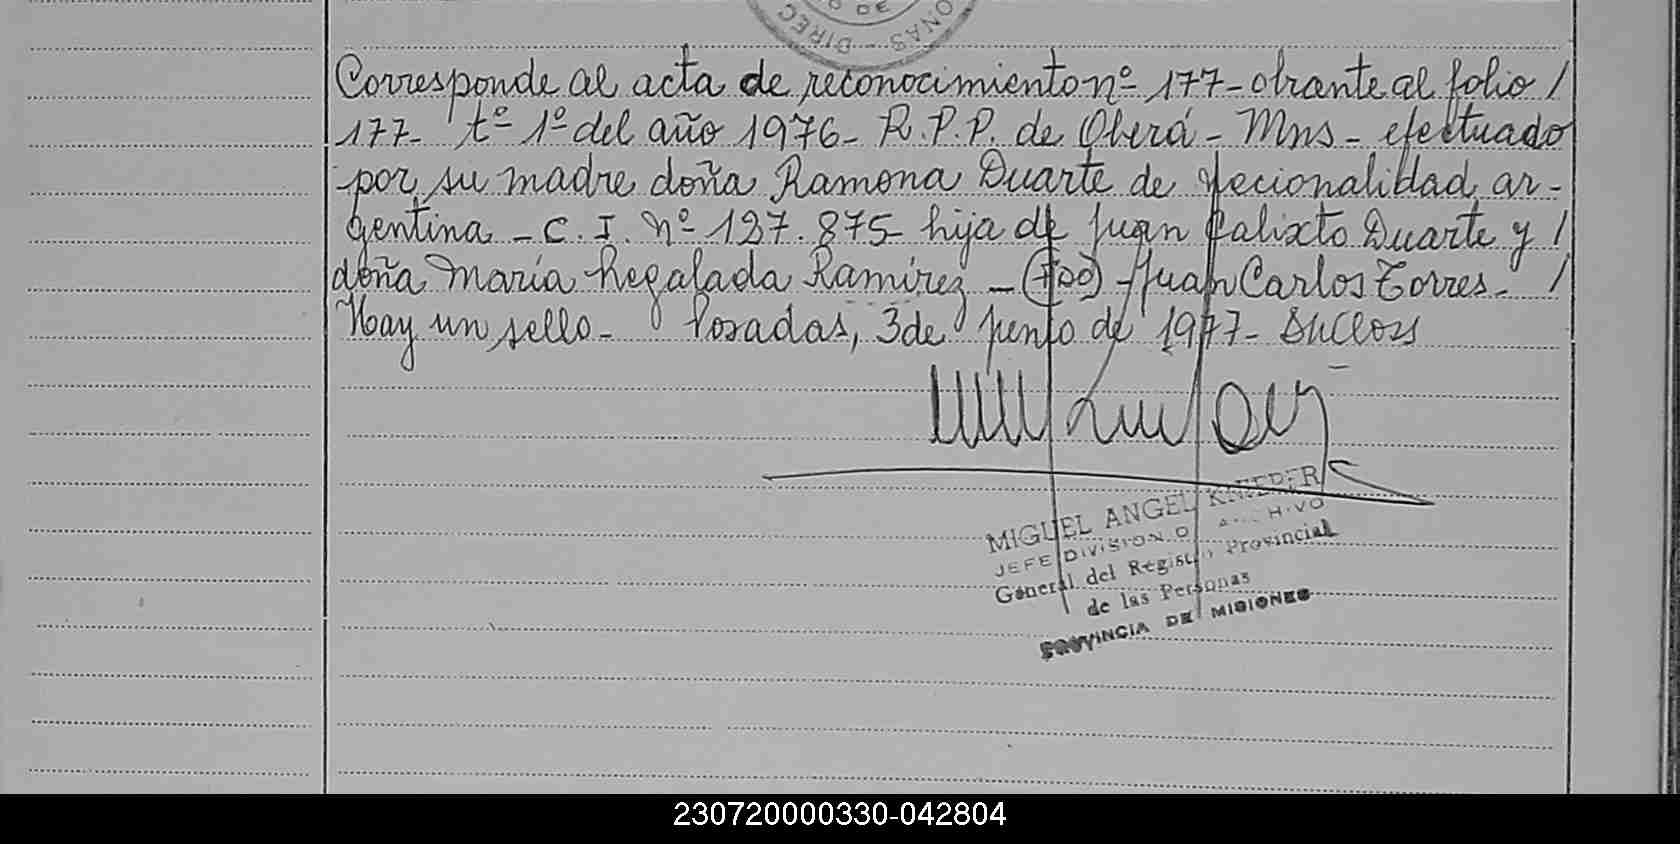 DE
ONAS - DIREC
Corresponde al acta de reconocimiento nº 177- obrante al folio /
177- tº 1º del año 1976- R.P.P. de Oberá - Mns - efectuado
por su madre doña Ramona Duarte de nacionalidad ar-
gentina - C.I. Nº 127.875- hija de Juan Calixto Duarte y /
doña María Regalada Ramírez - (Fdo) - Juan Carlos Torres- /
Hay un sello- Posadas, 3 de junio de 1977-
MIGUEL ANGEL
JEFE DIVISION ARCHIVO
General del Registro Provincial
de las Personas
PROVINCIA DE MISIONES
230720000330-042804